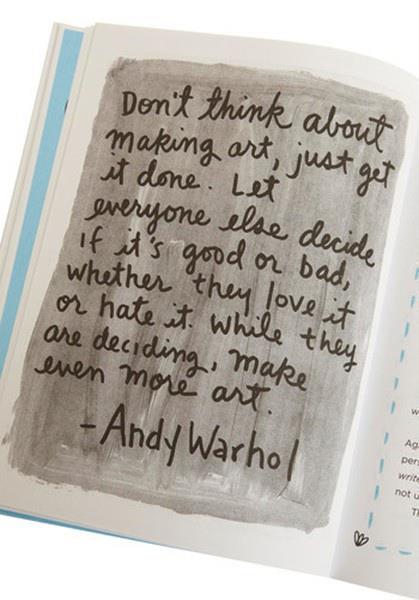 Don't think about
making art, just get
it done. Let
everyone else decide
if it's good or bad,
whether they love it
or hate it. While they
are deciding, make
even more art.
-Andy Warhol
w
Ag
pers
write
not u
Th